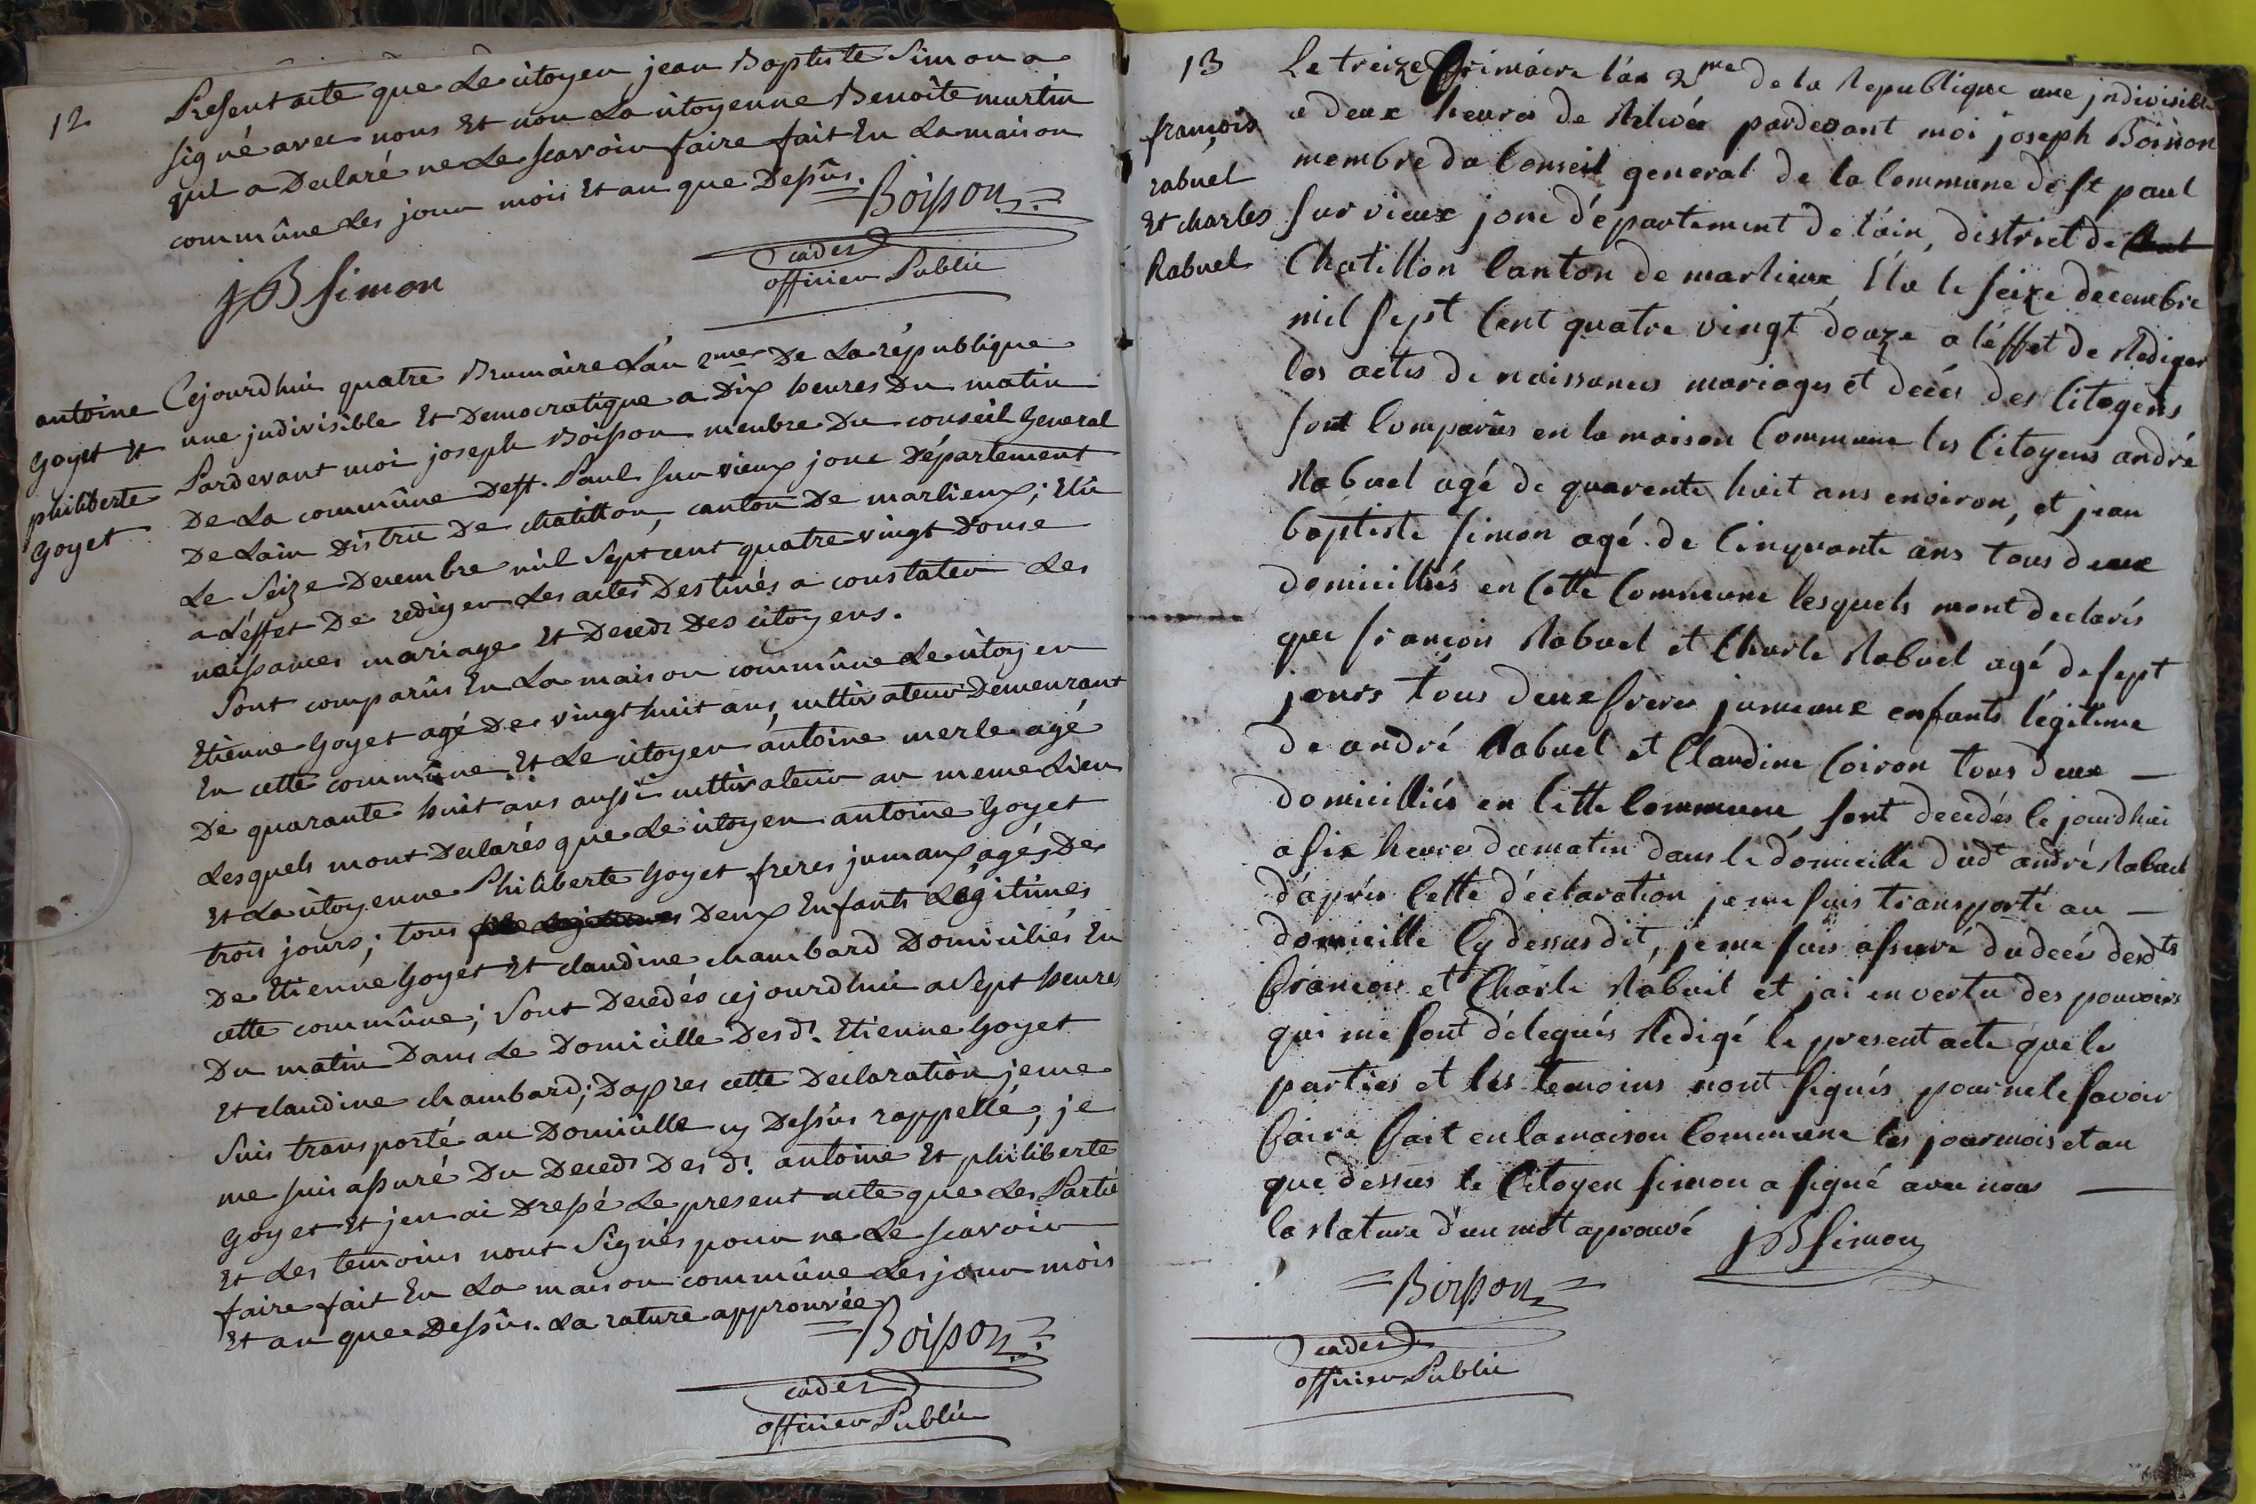 12
Present acte que Le citoyen jean Baptiste Simon a
signé avec nous Et non La citoyenne Benoite martin
qui a Declaré ne Le scavoir faire fait En La maison
commûne Les jour mois Et an que Dessûs.
=Boisson=
cadet
officier Public
JB simon
antoine
Goyet Et
philiberte
Goyet
Cejourdhui quatre Brumaire L'an 2me De La république
une jndivisible Et Democratique a Dix heures Du matin
Pardevant moi joseph Boisson membre Du conseil General
De La commûne De st. Paul sur vieux jonc Département
De Lain District De chatillon, canton De marlieux; Elû
Le Seize Decembre mil Sept cent quatre vingt Douse
a L'éffet De rediger Les actes Destinés a constater Les
naissances mariage Et Deceds Des citoyens.
Sont comparûs En La maison commûne Le citoyen
Etienne Goyet agé De vingt huit ans, cultivateur Demeurant
En cette commûne Et Le citoyen antoine merle agé
De quarante huit ans aussi cultivateur au meme Lieu
Lesquels mont Declarés que Le citoyen antoine Goyet
Et La citoyenne Philiberte Goyet freres jumaux agés De
trois jours; tous Deux Enfants Légitimes
De Etienne Goyet Et claudine chambard Domiciliés En
cette commûne; Sont Decedés cejourdhui a Sept heures
Du matin Dans Le Domicille Des d. Etienne Goyet
Et claudine chambard; Dapres cette Declaration je me
Suis transporté au Domicille cy Dessûs rappellé; je
me suis assuré Du Deced Des d. antoine Et philiberte
Goyet Et jen ai Dressé Le present acte que Les Partie
Et Les temoins nont Signés pour ne Le scavoir
faire fait En La maison commûne Les jour mois
Et an que Dessûs. La rature approuvée
=Boisson=
cadet
officier Public
13
françois
rabuel
Et charles
Rabuel
Le treize frimaire l'an 2me de la Republique une jndivisible
a deux heures de Relevée pardevant moi joseph Boisson
membre du Conseil general de la Commune de st paul
sur vieux jonc département de l'ain, district de
Chatillon Canton de marlieux, Elu le seize decembre
mil sept Cent quatre vingt douze a l'éffet de Rediger
les actes de naissances mariages et décés des Citoyens
sont Comparûs en la maison Commune les Citoyens andré
Rabuel agé de quarente huit ans environ, et jean
baptiste simon agé de Cinquante ans tous deux
domicilliés en Cette Commune lesquels mont declarés
que françois Rabuel et Charle Rabuel agé de sept
jours tous deux freres jumeaux enfants légitime
de andré Rabuel et Claudine Coiron tous deux
domicilliés en Cette Commune sont decedés le jourdhui
a six heures du matin dans le domicille dudt andré Rabuel
d'après Cette déclaration je me suis transporté au
domicille Cy dessus dit, je me suis assuré du decés desdts
francois et Charle Rabuel et jai en vertu des pouvoirs
qui me sont délegués Redigé le present acte que le
parties et les temoins nont signés pour ne le savoir
faire fait en la maison Commune les jour mois et an
que dessus le Citoyen simon a signé avec nous
la Rature d'un mot aprouvé
JB simon
=Boisson=
cadet
officier Public